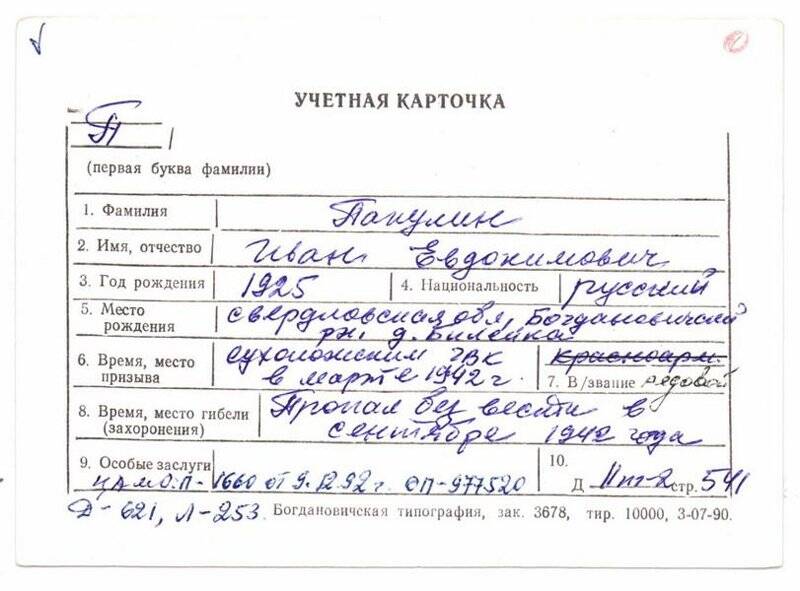 УЧЕТНАЯ КАРТОЧКА
П
(первая буква фамилии)
1. Фамилия Папулин
2. Имя, отчество Иван Евдокимович
3. Год рождения 1925 4. Национальность русский
5. Место рождения свердловская обл, Богдановичский
рн. д. Билейка
6. Время, место призыва сухоложским ГВК
в марте 1942 г.
красноарм.
7. В/звание рядовой
8. Время, место гибели (захоронения) Пропал без вести в
сентябре 1942 года
9. Особые заслуги
ЦАМО. П-1660 от 9.12.92 г. ОП-977520
10.
Д стр. 541
Д-621, Л-253. Богдановичская типография, зак. 3678, тир. 10000, 3-07-90.